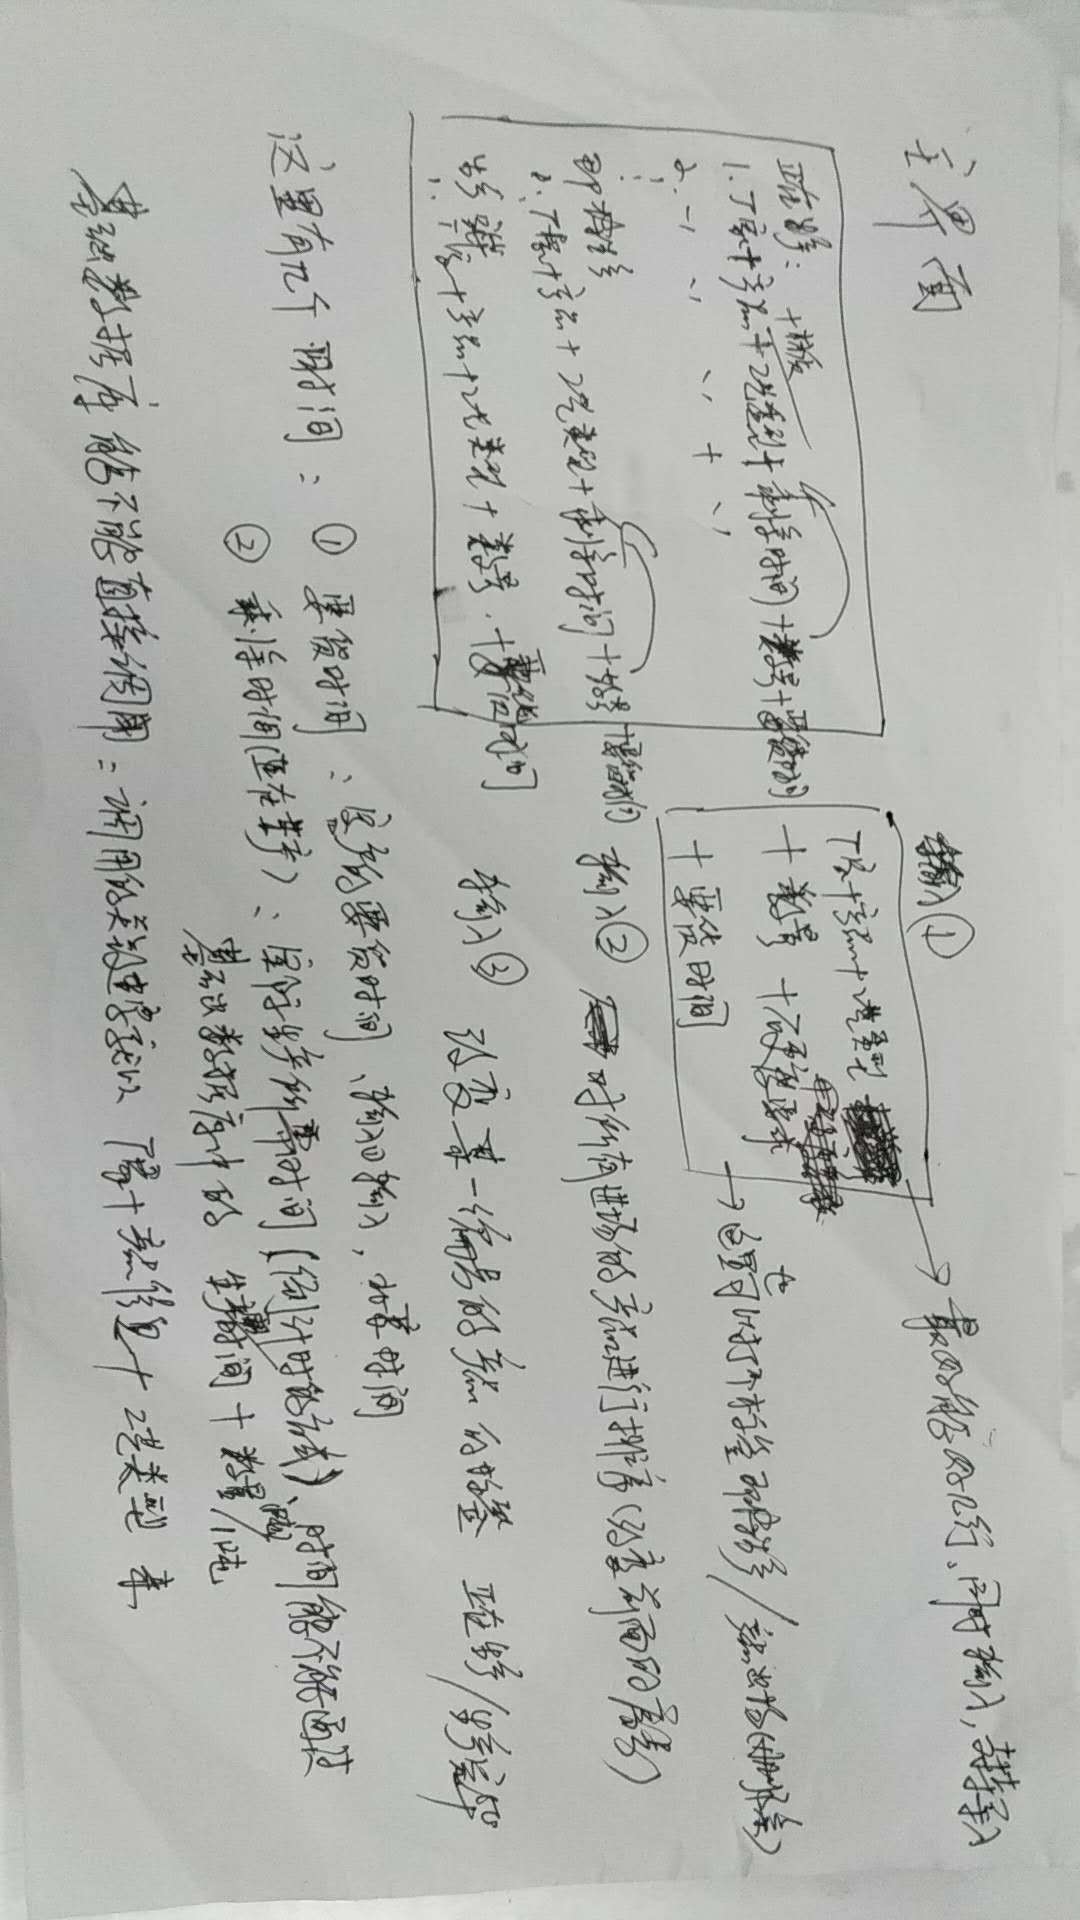 主界面
正在生产：
+材质
1. 厂家+产品+工艺类型+剩余时间+数量+要货时间
2.
即将生产
1. 厂家+产品+工艺类型+剩余时间+数量+要货时间
生产完毕
1. 厂家+产品+工艺类型+数量+要货时间
输入①
厂家+产品+工艺类型
+数量+硬度要求
+要货时间
→最好能好几行、同时输入，支持导入
→这里也可以打个标签 即将生产/产品出场(删除)
输入② 对所有进场的产品进行排序(改变前面的序号)
输入③ 改变某一编号的产品的标签 正在生产/生产完毕
这里有几个时间：① 要货时间：客户的要货时间、输入①输入，北京时间
② 剩余时间(正在生产)：实际生产所需时间(倒计时的方式)、时间能不能通过
基础数据库中的 生产时间+数量/吨
基础数据库能不能直接调用：调用的关键字就以 厂家+产品信息+工艺类型 来